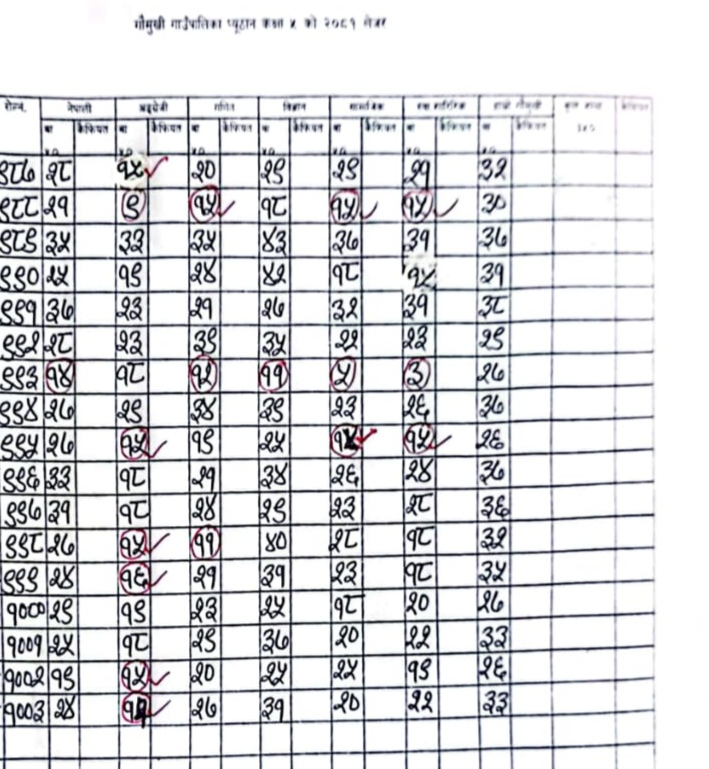 गौमुखी गाउँपालिका प्यूठान कक्षा ५ को २०८१ लेजर
रोल नं. नेपाली अङ्ग्रेजी गणित विज्ञान सामाजिक हाम्रो गौमुखी
कैफियत कैफियत कैफियत कैफियत कैफियत कैफियत कैफियत
९८७ २८ १५ २० २९ २९ २१ ३२
९८८ २१ ९ १५ १८ १५ १५ ३०
९८९ ३५ ३३ ३५ ४३ ३७ ३१ ३७
९९० २५ १९ २४ ४२ १८ ३१
९९१ ३७ २३ २१ २७ ३२ ३१ ३८
९९२ २८ २३ ३९ ३५ २२ २३ २९
९९३ १४ १८ १२ ११ ५ ३ २७
९९४ २७ २९ ३४ ३९ २३ २६ ३७
९९५ २७ १५ १९ २५ १५ २६
९९६ ३३ १८ २१ ३४ २६ २४ ३७
९९७ ३१ १८ २४ २९ २३ २८ ३६
९९८ २७ १५ ११ ४० २८ १८ ३२
९९९ २४ १६ २१ ३१ २३ १८ ३५
१००० २९ १९ २३ २५ १८ २० २७
१००१ २५ १८ २९ ३७ २० २२ ३३
१००२ १९ १५ २० २५ २५ १९ २६
१००३ २४ २७ ३१ २० २२ ३३